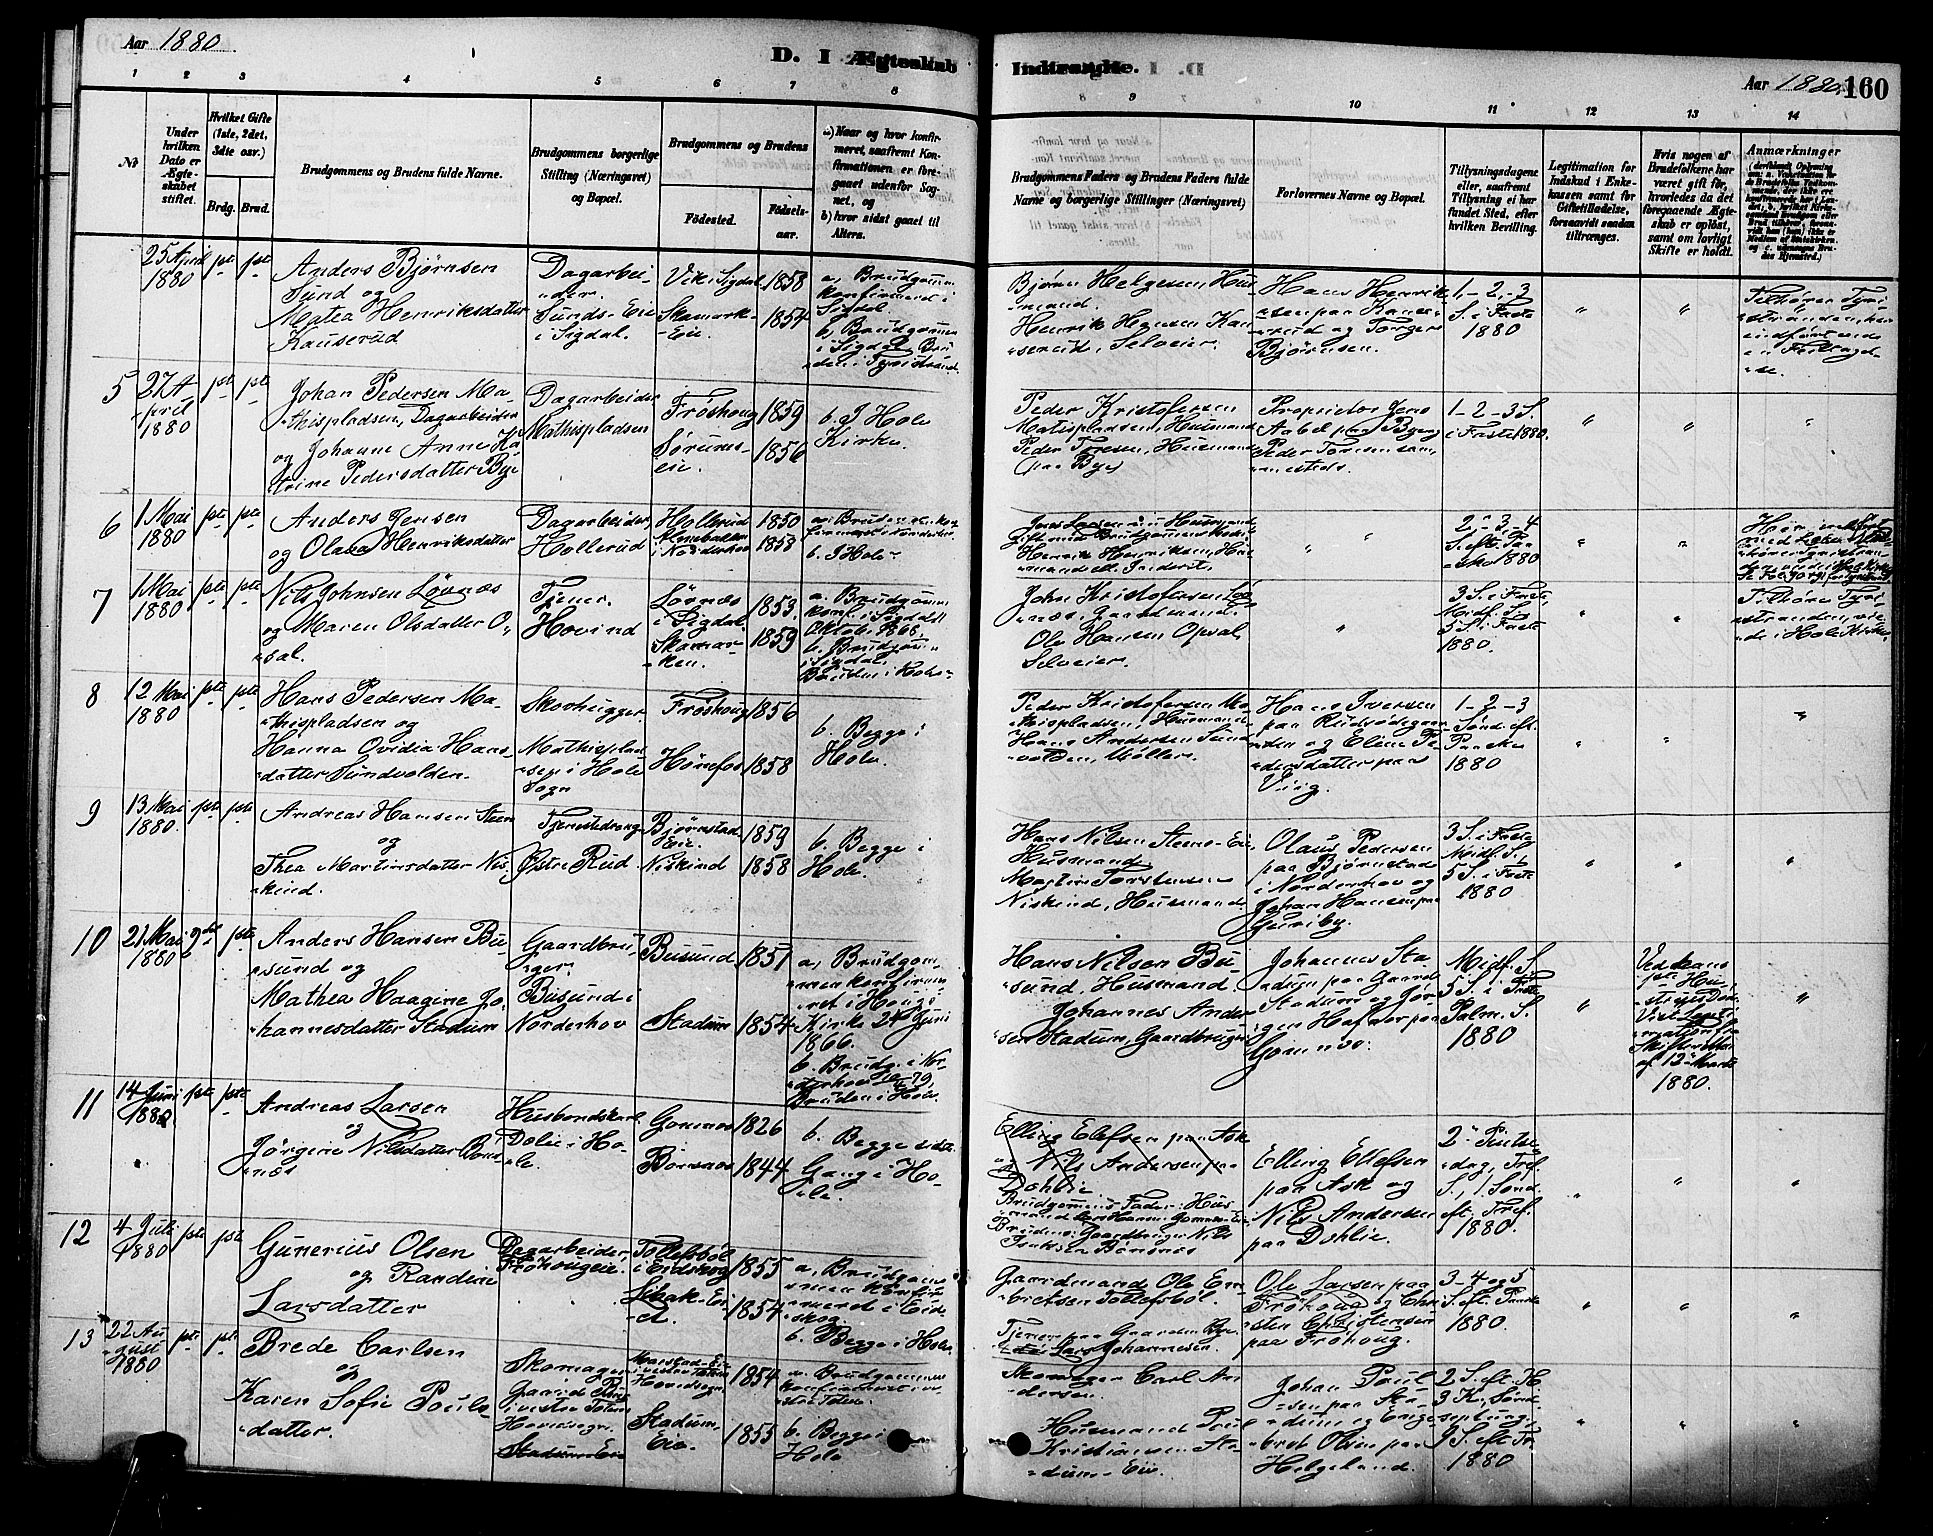 Aar 1880
D. I Ægteskab
Indtraadte.
Aar 1880. 160
1 2 3 4 5 6 7 8
9 10 11 12 13 14
No
Under hvilken Dato er Ægteskabet stiftet.
Hvilket Gifte (1ste, 2det, 3die osv.)
Brdg. Brud.
Brudgommens og Brudens fulde Navne.
Brudgommens borgerlige Stilling (Næringsvei) og Bopæl.
Brudgommens og Brudens
Fødested.
Fødselsaar.
a) Naar og hvor konfirmeret, saafremt Konfirmationen er foregaaet udenfor Sognet, og
b) hvor sidst gaaet til Alters.
Brudgommens Faders og Brudens Faders fulde Navne og borgerlige Stillinger (Næringsvei)
Forlovernes Navne og Bopæl.
Tillysningsdagene eller, saafremt Tillysning ei har fundet Sted, efter hvilken Bevilling.
Legitimation for Indskud i Enkekassen samt for Giftetilladelse, forsaavidt saadan tiltrænges.
Hvis nogen af Brudefolkene har været gift før, hvorledes da det foregaaende Ægteskab er opløst, samt om lovligt Skifte er holdt.
Anmærkninger
25 April 1880 pste pste
Anders Bjørnsen
Sund og
Matea Henriksdatter
Kauserud
Dagarbeider.
Sunds-Eie
i Sigdal.
Vik i Sigdal 1858
Skamark-Eie. 1854
a, Brudgommen
konfirmeret i
Sigdal.
b. Brudgommen
i Sigdal, Bruden
i Tyristrand.
Bjørn Helgesen, Husmand.
Henrik Hansen Kanserud, Selveier.
Hans Henriksen
paa Kanserud
og Torger
Bjørnsen.
1,-2,-3
S. i Faste
1880
" "
Tilhører Tyristranden,
5 27 April 1880 pste pste
Johan Pedersen Mathispladsen, Dagarbeider
og Johanne Anne Katrine Pedersdatter Bye
Dagarbeider
Mathispladsen
Frøshoug 1859
Sørums-eie. 1856
b. I Hole
Kirke.
Peder Kristofersen
Matispladsen, Husmand
Peder Toresen, Husmand
paa Bye
Proprietær Jens
Aabel paa Bye og
Peder Toresen sammesteds.
1-2-3 S.
i Faste 1880.
" " "
6 1 Mai 1880 pste pste
Anders Jensen
og Olava Henriksdatter
Dagarbeider,
Hollerud
Hollerud 1850
i Norderhov 1853
b. I Hole
Henrik Henriksen, Husmand
" "
2-3-4
S. eft. Paaske 1880
" "
7 1 Mai 1880 pste pste
Nils Johnsen Løvnæs
og Maren Olsdatter Opsal.
Tjener.
Hovind
Løvnæs
i Sigdal 1853.
Skamarken. 1859
a. Brudgommen
konf. i Sigdal
Oktob. 1868,
b. Brudgommen
i Sigdal,
Bruden i Hole
John Kristofersen Løvnæs, Gaardmand.
Ole Hansen Opsal,
Selveier.
"
3 S. i Faste,
Midf. S.
5 S. i Faste
1880.
" "
Tilhører Tyristranden, viede i Hole Kirke
8 12 Mai 1880 pste pste
Hans Pedersen Mathispladsen og
Hanna Ovidia Hansdatter Sundvolden.
Skovhugger
Mathispladsen i Hole
Sogn
Frøshoug 1856
Hønefos 1858
b. Begge i
Hole.
Peder Kristofersen Mathispladsen, Husmand
Hans Andersen Sundvolden, Møller.
Hans Iversen
paa Rudsødegaarden og Eline Pedersdatter paa
Viig.
1-2-3
Sønd. eft.
Paaske
1880
" " "
9 13 Mai 1880. pste pste
Andreas Hansen Steen
og
Thea Martinsdatter Niskind.
Tjenestedreng
Østre Rud
Bjørnstad
Eie. 1859
Niskind 1858
b. Begge i
Hole.
Hans Nilsen Steens-Eie,
Husmand
Martin Torstensen
Niskind, Husmand
Olaus Pedersen
paa Bjørnstad
i Norderhov og
Johan Hansen paa
Guriby.
3 S. i Faste
Midf. S.,
5 S. i Faste
1880
" " "
10 21 Mai 1880 2det pste
Anders Hansen Busund og
Mathea Haagine Johannesdatter Stadum
Gaardbruger
Busund i
Norderhov
Busund 1851
Stadum 1854
a, Brudgommen konfirmeret i Hougs
Kirke 24 Juni
1866.
b. Brudg. i Norderhov 79,
Bruden i Hole.
Hans Nilsen Busund, Husmand.
Johannes Andersen Stadum, Gaardbruger
Johannes Stadum paa Gaard
Stadum og Jørgen Hafnor paa
Gomnæs.
Midf. S.
5 S. i Faste
Palm. S.
1880
"
Ved hans
1ste Hustrues Død.
Skifteretten
af 12 Marts
1880.
"
11 14 Juni 1880 pste pste
Andreas Larsen
og
Jørgine Nilsdatter Bønsnæs
Husbondskarl
Dolie i Hole.
Gomnæs 1826
Bønsnæs 1844
b. Begge sidste
Gang i Hole.
Elling Elefsen paa Ask
og Nils Andersen paa
Dohlie.
Brudgommens Fader: Husmand Lars Hansen Gomnæs-Eie
Brudens: Gaardbruger Nils
Isaksen Bønsnæs
Elling Ellefsen
paa Ask og
Nils Andersen
paa Dohlie.
2 Pintsedag, Tref.
S., 1 Sønd.
eft. Tref.
1880.
" " "
12 4 Juli 1880 pste pste
Gunerius Olsen
og Randine
Larsdatter
Dagarbeider,
Frøhougeie.
Tollefsbøl
i Eidskog 1855
Libak-Eiet. 1854
a, Brudgommen konfirmeret i Eidskog.
b. Begge i Hole.
Gaardmand Ole Embretsen Tollefsbøl.
Tjener paa Gaarden Bye
Lars Johannesen.
Ole Larsen paa
Frøhoug og Christen Christensen
paa Frøhoug.
3-4 og 5
S. eft. Paaske
1880.
" " "
13 22 August 1880 pste pste
Brede Carlsen
og
Karen Sofie Poulsdatter.
Skomager
i vestre Toten
Hovidsogn.
Stadum-Eie
i vestre Toten
Hovidsogn. 1854
Stadum-Eie. 1855
a. Brudgommen
konfirmeret i vestre Toten
b. Begge i
Hole
Skomager Carl Andersen.
Husmand Poul
Kristiansen Stadum-Eie
Johan Poulsen paa Stadum og Engebret Olsen paa
Helgeland.
1880
" " "